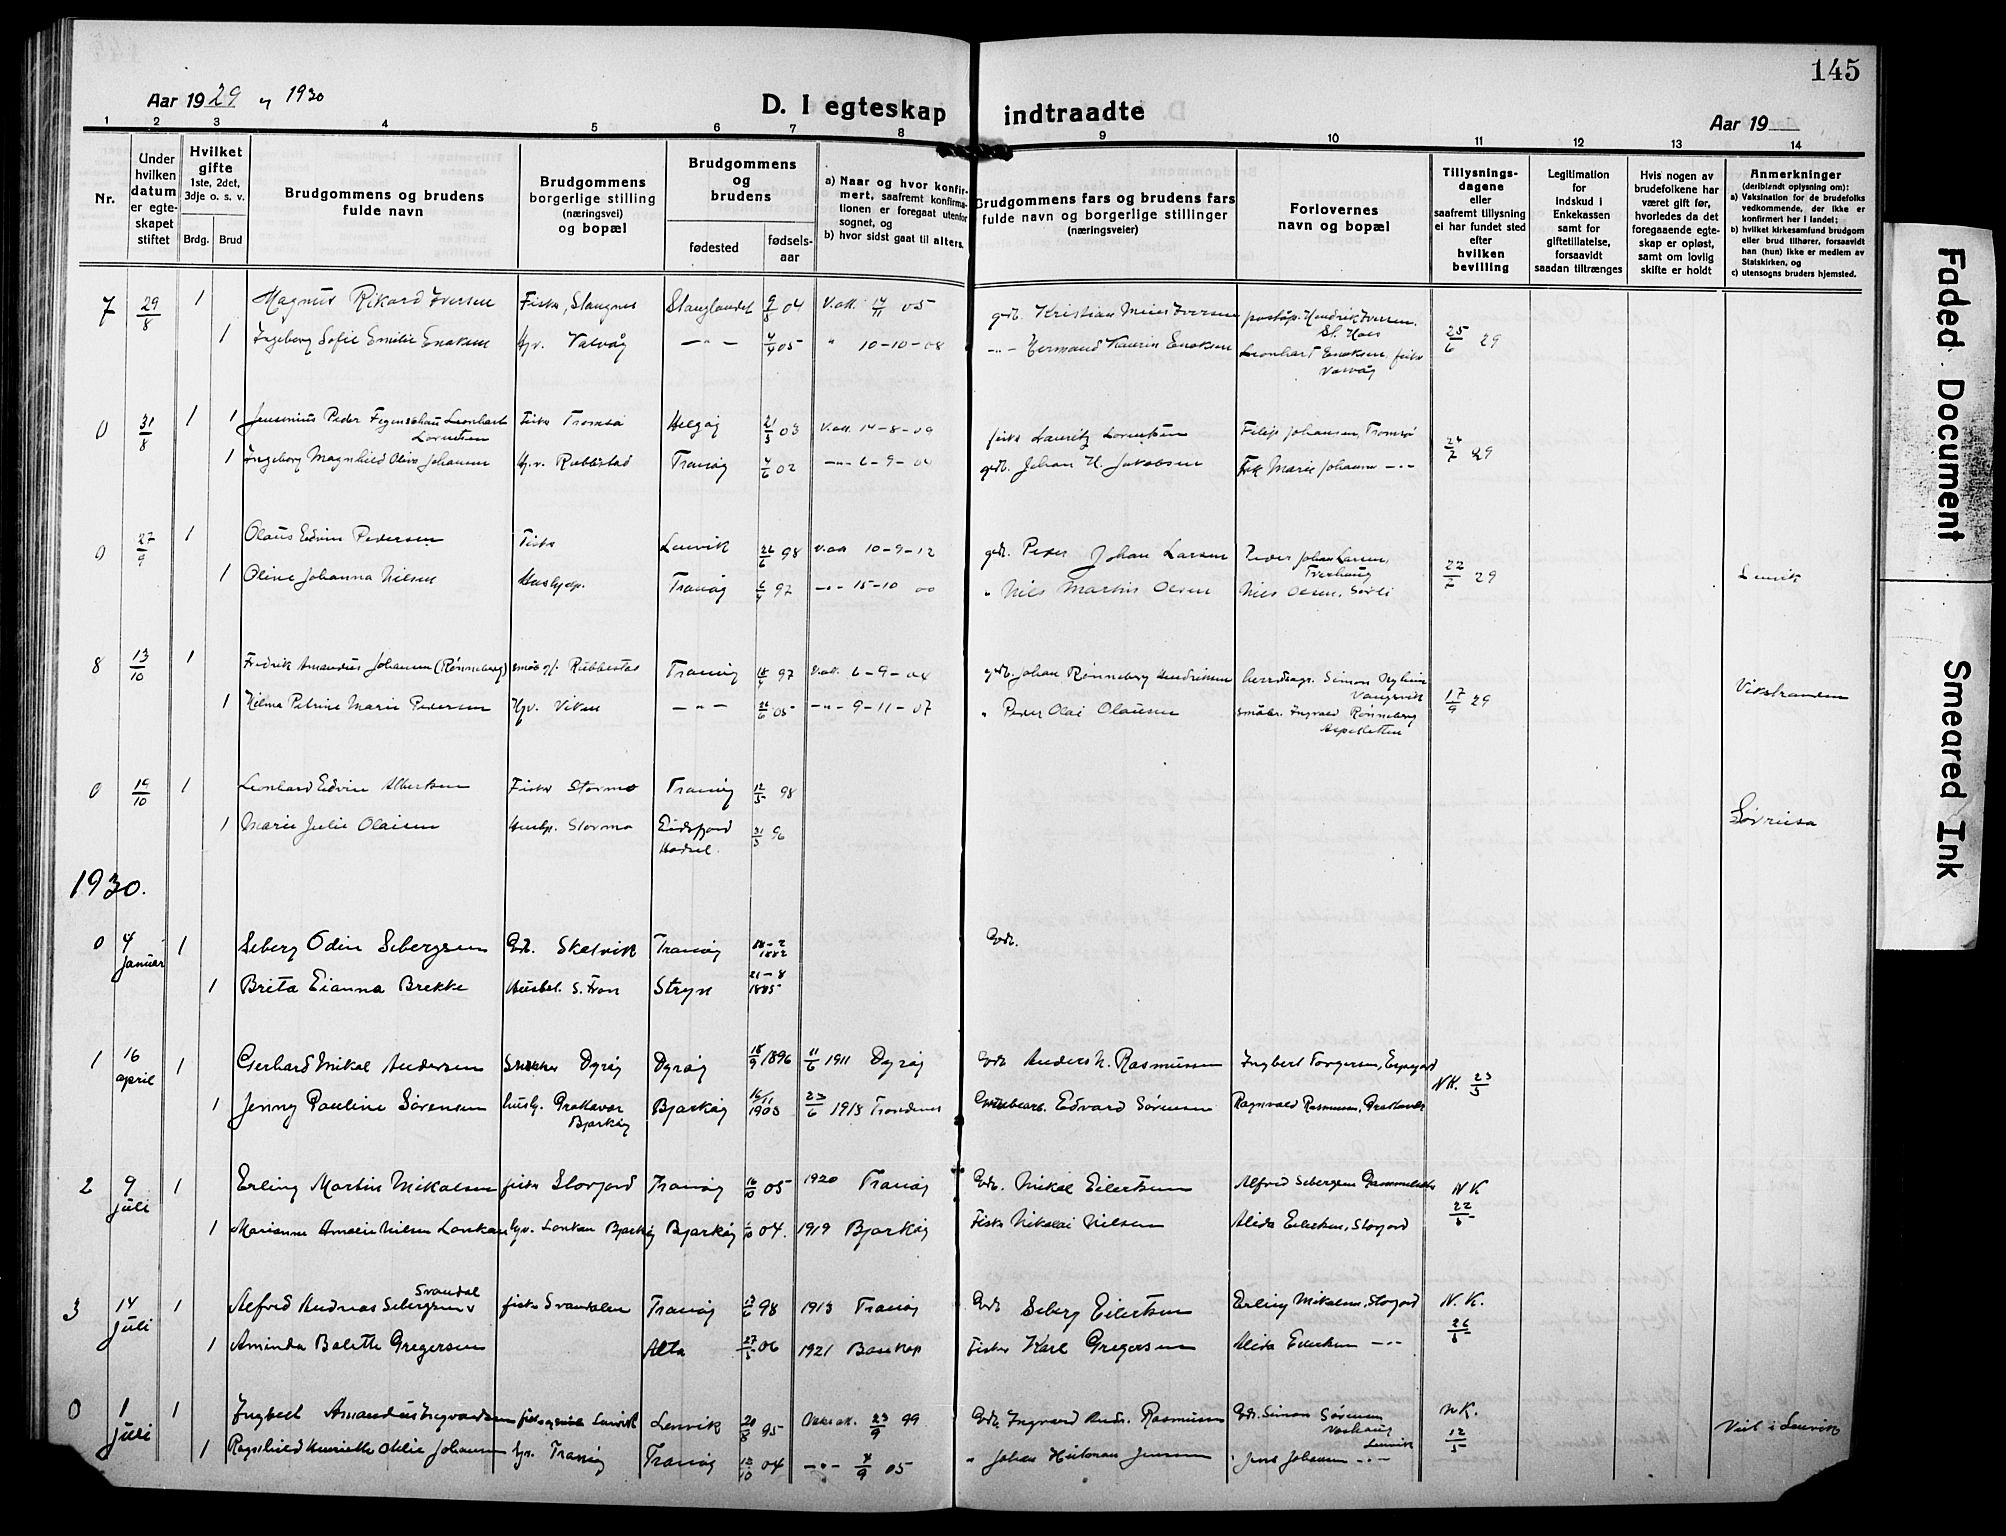 145
Aar 1929 og 1930
D. I egteskap indtraadte
Aar 19
1 2 3 4 5 6 7 8 9 10 11 12 13 14
Nr.
Under hvilken datum er egteskapet stiftet
Hvilket gifte
1ste, 2det, 3dje o. s. v.
Brdg. Brud
Brudgommens og brudens fulde navn
Brudgommens borgerlige stilling (næringsvei) og bopæl
Brudgommens og brudens
fødested
fødsels-aar
a) Naar og hvor konfirmert, saafremt konfirmationen er foregaat utenfor sognet, og
b) hvor sidst gaat til alters.
Brudgommens fars og brudens fars fulde navn og borgerlige stillinger (næringsveier)
Forlovernes navn og bopæl
Tillysningsdagene eller saafremt tillysning ei har fundet sted efter hvilken bevilling
Legitimation for indskud i Enkekassen samt for giftetillatelse, forsaavidt saadan tiltrænges
Hvis nogen av brudefolkene har været gift før, hvorledes da det foregaaende egteskap er opløst, samt om lovlig skifte er holdt
Anmerkninger
(deriblandt oplysning om):
a) Vaksination for de brudefolks vedkommende, der ikke er konfirmert her i landet;
b) hvilket kirkesamfund brudgom eller brud tilhører, forsaavidt han (hun) ikke er medlem av Statskirken, og
c) utensogns bruders hjemsted.
7 29/8 1 Magnus Rikard Iversen Fisker, Stangnes Stanglandet 9/5 04 V.att. 14/11 05 gdb. Kristian Meier Iversen Hendrik Iversen 25/6 29
1 Ingeborg Sofie Emilie Enoksen Hjv. Valvåg —"— 4/4 05 " 10-10-08 —"— Hermand Kaurin Enoksen Leonhart Enoksen, fisker Valvåg
0 31/8 1 1 Jensenius Peder Fegenschau Leonhart Lorentsen Fisker Tromsø Helgøy 21/5 03 V.att. 14-8-09 fisker Lauritz Lorentsen Filip Johansen, Tromsø 24/7 29
1 Ingeborg Magnhild Oline Johansen Hjv. Rubbestad Tranøy 4/6 02 —"— 6-9-04 gdb. Johan H. Jakobsen Frk Marie Johansen —"—
0 27/9 1 Olaus Edvin Pedersen Fisker Lenvik 26/6 98 V.att 10-9-12 gdb. Peder Johan Larsen Peder Johan Larsen, 22/7 29 Lenvik
1 Oline Johanna Nilsen Husbjelp. Tranøy 6/4 97 —"— 15-10 00 " Nils Martin Olsen Nils Olsen, Sørli
8 13/10 1 Fredrik Amandus Johansen (Rønneberg) småbr. Rubbestad Tranøy 18/4 97 V.att. 6-9-04 gdb. Johan Rønneberg Hendriksen herredsagr. Simon Nylund Vangsvik 17/9 29 Vikstranden
1 Hilma Petrine Marie Pedersen Hjv. Viken —"— 26/6 05 —"— 9-11-07 " Peder Olai Olausen småbr. Ingvald Rønneberg Espeletten
0 19/10 1 Leonhard Edvin Albertsen Fisker Stormo Tranøy 12/5 98
1 Marie Julie Olaisen Husbj. Stormo Eidsfjord Hadsel. 31/5 96 Sørreisa
1930.
0 4 Januar 1 Seberg Odin Sebergsen Gdb. Skatvik Tranøy 18-2 1882 Gdb.
1 Brita Eianna Brekke Husbst. S. Fron Stryn 21-8 1885
1 16 april 1 Gerhard Mikal Andersen Snekker Dyrøy Dyrøy 18/9 1896 11/6 1911 Dyrøy Gdb Anders N. Rasmussen Ingbert Torgersen, Espejord N.K. 23/5
1 Jenny Pauline Sørensen husbj. Grøtavær Bjarkøy Bjarkøy 16/11 1903 23/6 1918 Trondenes Edvard Sørensen Ragnvald Rasmussen, Grøtavær
2 9 juli 1 Erling Martin Mikalsen fisker Storjord Tranøy 16/10 05 1920 Tranøy Gdb. Mikal Eilertsen Alfred Sebergsen N.K 22/6
1 Marianne Amalie Nilsen Lonkan hjv. Lonkan Bjarkøy Bjarkøy 1/10 04. 1919 Bjarkøy Fisker Nikolai Nilsen Alida Eilertsen, Storjord
3 14 juli 1 Alfred Andreas Sebergsen Svandal fisker Svandalen Tranøy 13/6 98 1913 Tranøy Gdb Seberg Eilertsen Erling Mikalsen, Storjord N.K. 26/6
1 Aminda Bolette Gregersen Alta 27/5 06 1921 Bossekop Fisker Karl Gregersen Alida Eilertsen —"—
0 1 juli 1 Ingbert Amandus Ingvardsen Lenvik Lenvik 20/8 95 23/9 99 Gdb. Ingvard Andr. Rasmussen Gdr. Simon Sørensen Lenvik N.K. 12/5 Viet i Lenvik
1 Ragnhild Henriette Otelie Johansen hjv. Tranøy Tranøy 12/10 04 —"— 4/9 05 " Johan Hilman Jensen " Jens Johansen —"—
Faded Document
Smeared Ink